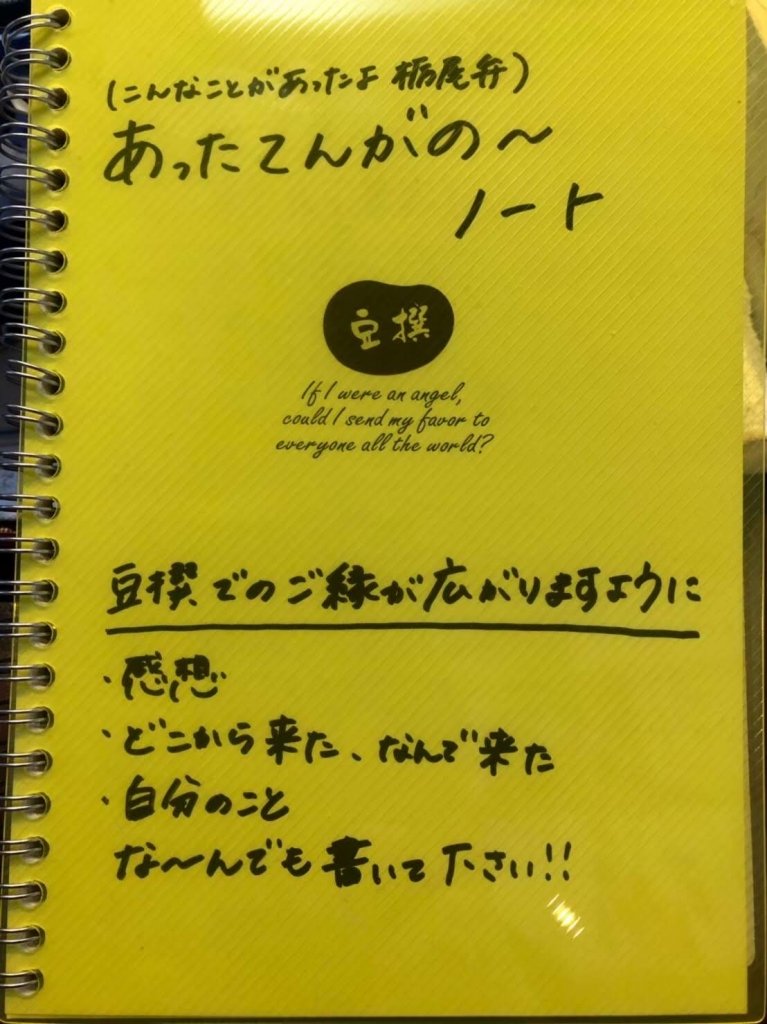 (こんなことがあったよ 栃尾弁)
あったてんがの〜
ノート
豆撰
If I were an angel,
could I send my favor to
everyone all the world?
豆撰でのご縁が広がりますように
・感想
・どこから来た、なんで来た
・自分のこと
な〜んでも書いて下さい!!